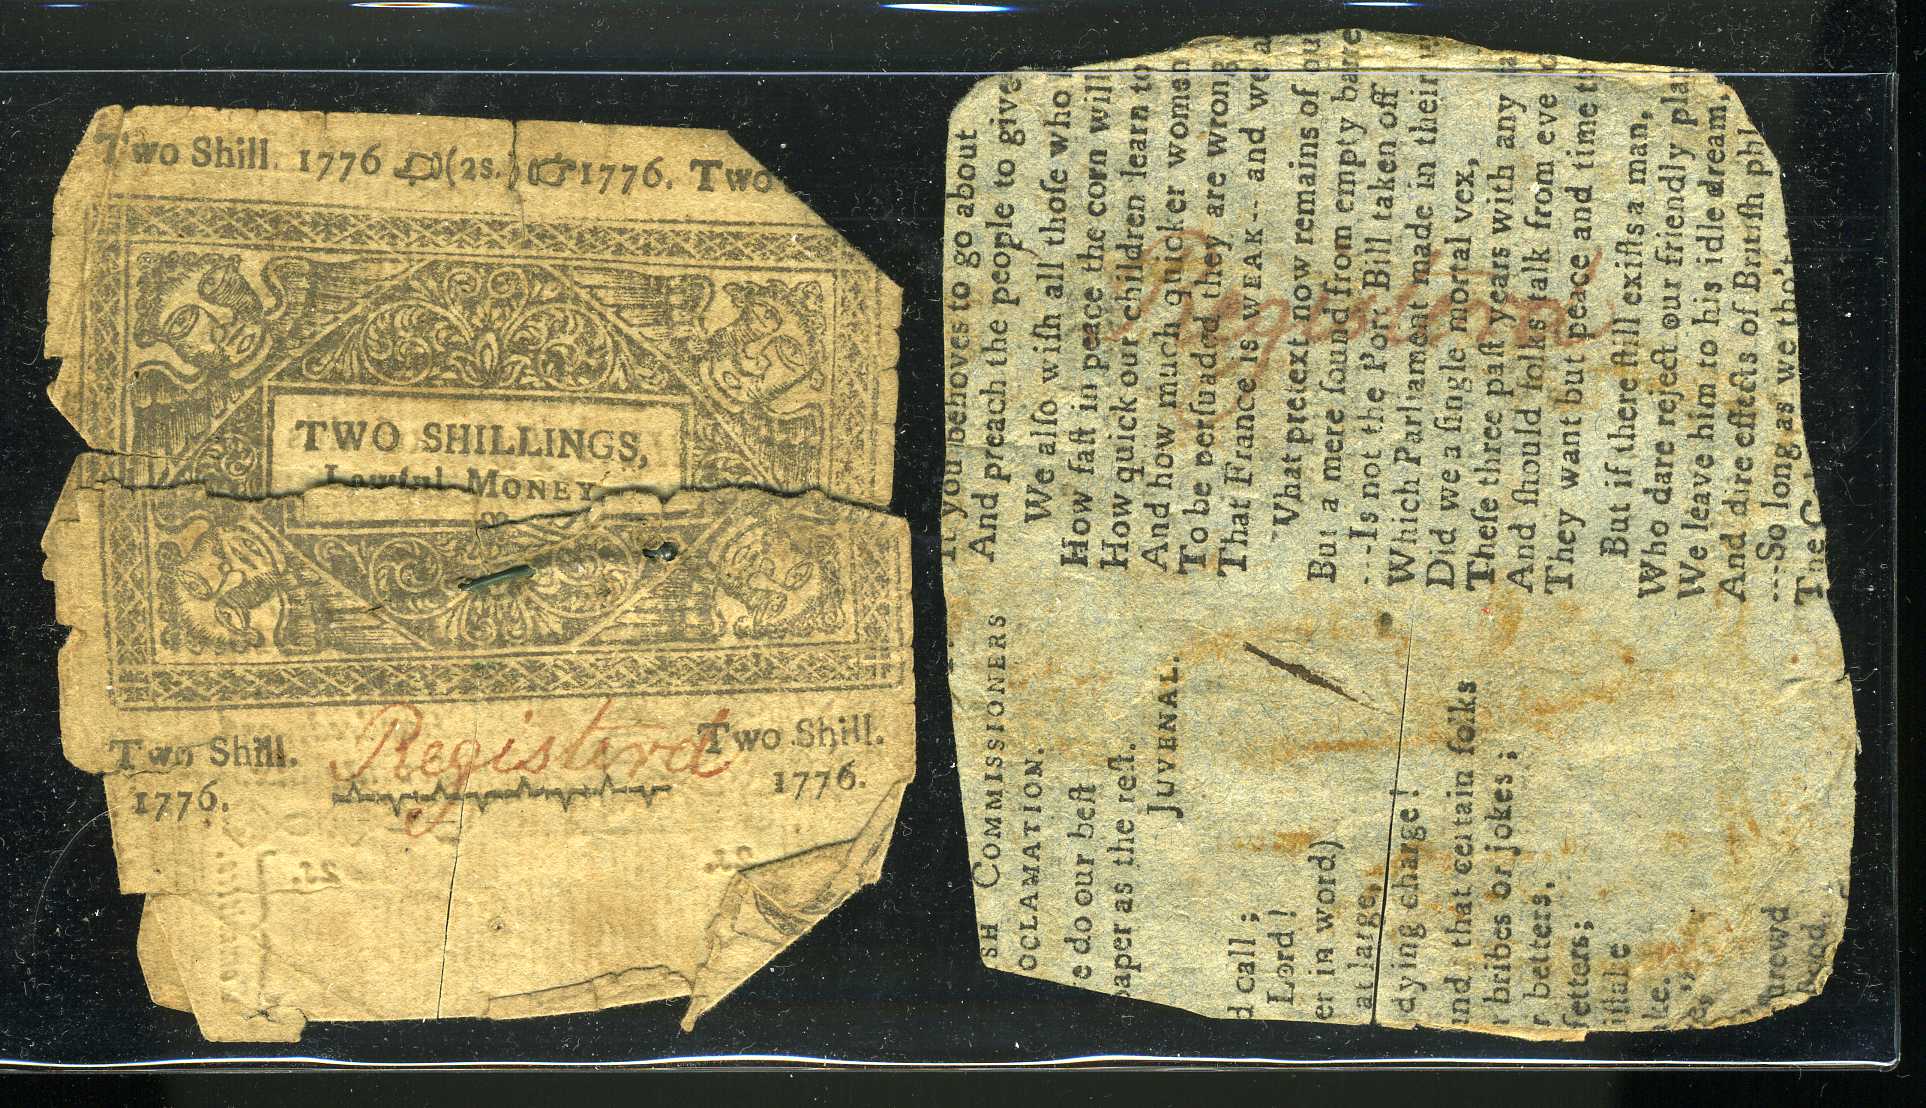 Two Shill. 1776 (2s.) 1776. Two
TWO SHILLINGS,
Lawful MONEY
Registerd
Two Shill.
1776.
Two Shill.
1776.
2s.
2s.
If you behoves to go about
And preach the people to give
We alſo wiſh all thoſe who
How faſt in peace the corn will
How quick our children learn to
And how much quicker women
To be perſuaded they are wrong
That France is WEAK -- and we a
What pretext now remains of ou
But a mere ſound from empty bare
---Is not the Port Bill taken off
Which Parliament made in their
Did we a ſingle mortal vex,
Theſe three paſt years with any
And ſhould folks talk from eve
They want but peace and time t
But if there ſtill exiſts a man,
Who dare reject our friendly pla
We leave him to his idle dream,
And dire effects of Britiſh phl
---So long as we tho't
The
Registerd
SH COMMISSIONERS
OCLAMATION.
e do our beſt
paper as the reſt.
JUVENAL.
d call;
Lord!
er in word)
at large,
dying charge!
ind, that certain folks
bribes or jokes;
r betters.
fetters;